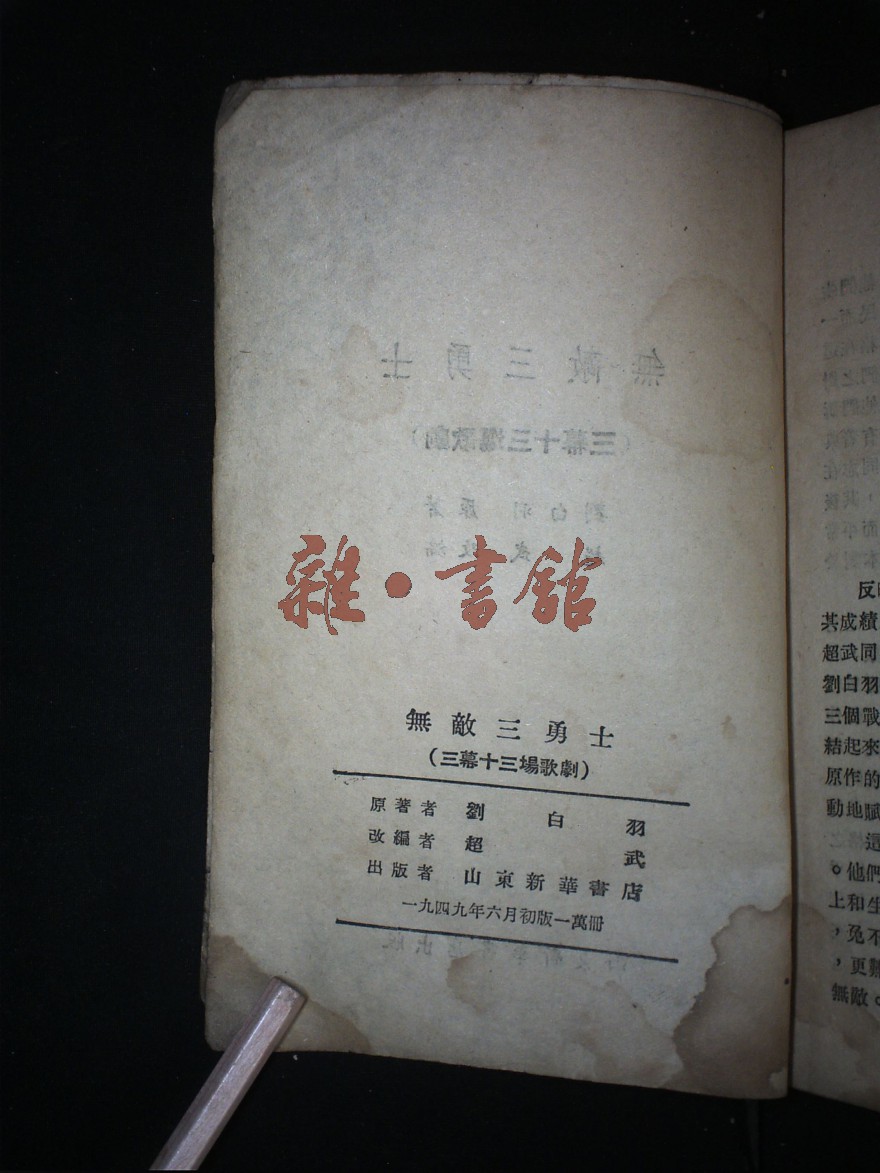 無敵三勇士
（三幕十三場歌劇）
劉白羽 原著
雜·書館
無敵三勇士
（三幕十三場歌劇）
原著者 劉白羽
改編者 超武
出版者 山東新華書店
一九四九年六月初版一萬冊
反
其成績
超武同
劉白羽
三個戰
結起來
原作的
動地賦
這
。他們
上和生
，免不
，更
無敵。